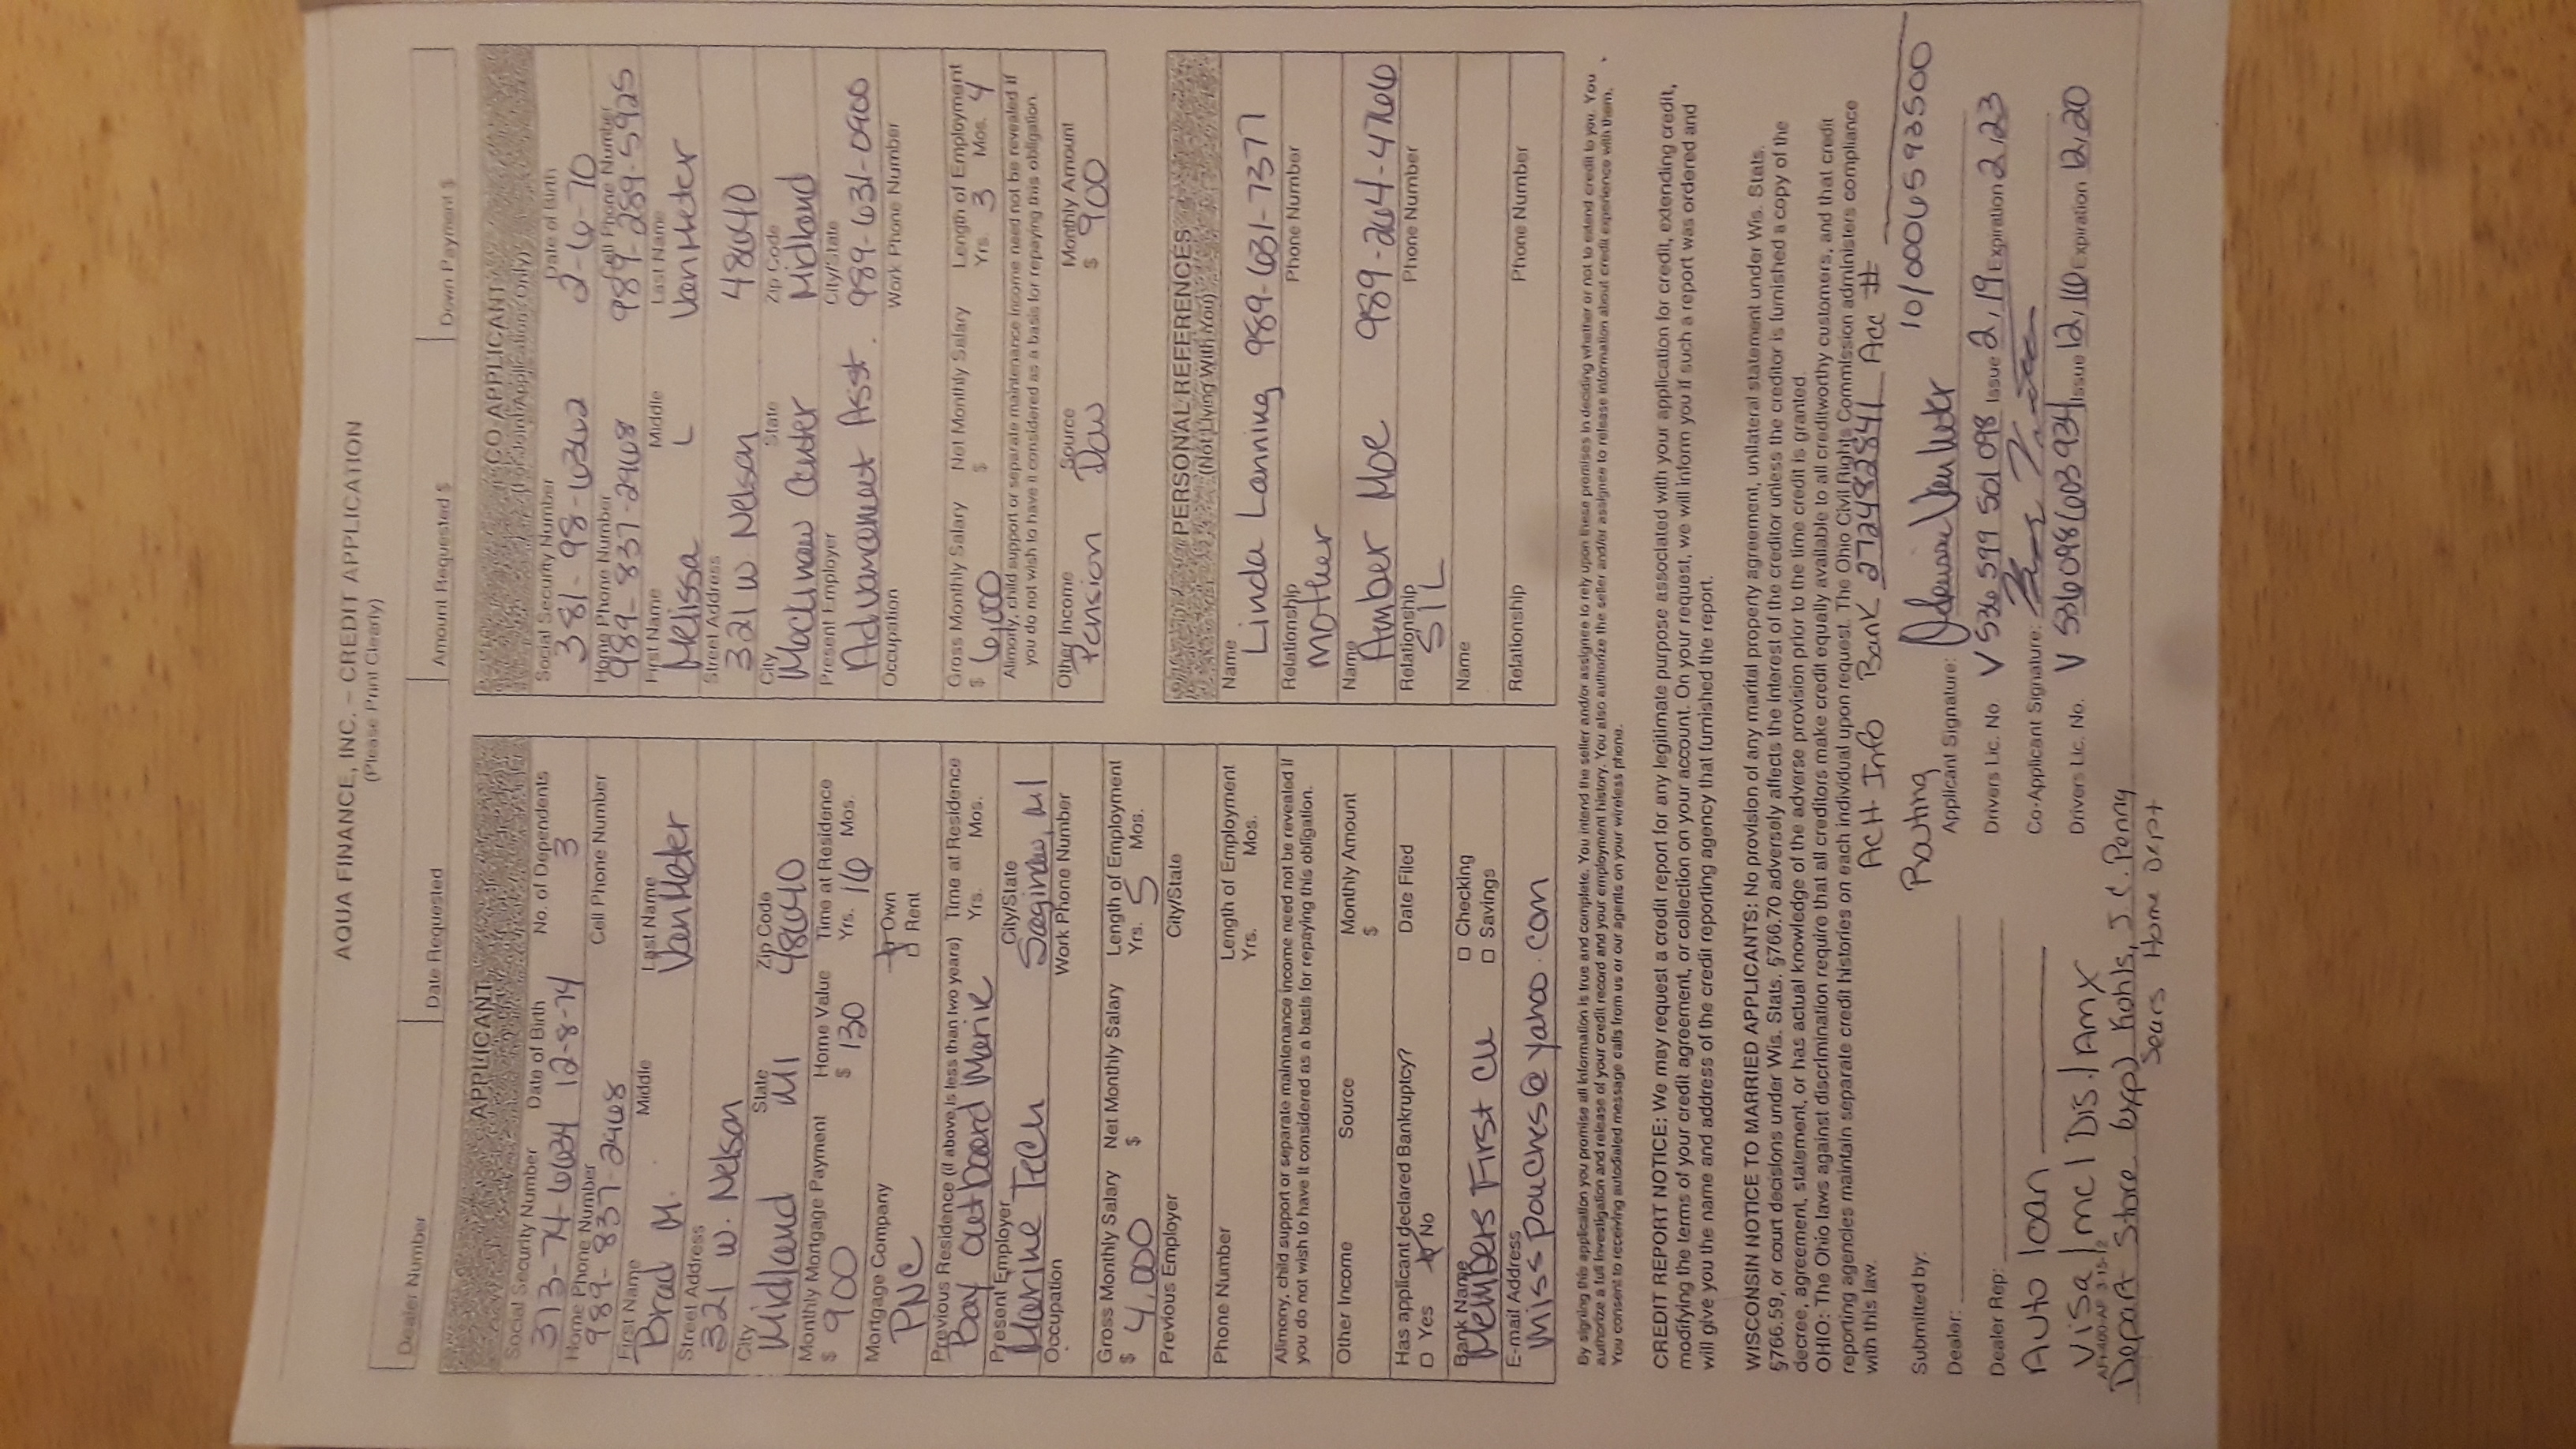 AQUA FINANCE, INC. – CREDIT APPLICATION
(Please Print Clearly)
Dealer Number
Date Requested
Amount Requested $
Down Payment $
APPLICANT
Social Security Number Date of Birth No. of Dependents
313-74-6634 12-8-74 3
Home Phone Number Cell Phone Number
989-837-2468
First Name Middle Last Name
Brad M. VanHeter
Street Address
321 W. Nelson
City State Zip Code
Midland MI 48640
Monthly Mortgage Payment Home Value Time at Residence
$ 900 $ 130 Yrs. 16 Mos.
Mortgage Company
PNC
Own
Rent
Previous Residence (if above is less than two years) Time at Residence
Yrs. Mos.
Bay Outboard Marine
Present Employer City/State
Marine Tech Saginaw, MI
Occupation Work Phone Number
Gross Monthly Salary Net Monthly Salary Length of Employment
$ 4,000 $ Yrs. 5 Mos.
Previous Employer City/State
Phone Number Length of Employment
Yrs. Mos.
Alimony, child support or separate maintenance income need not be revealed if
you do not wish to have it considered as a basis for repaying this obligation.
Other Income Source Monthly Amount
$
Has applicant declared Bankruptcy? Date Filed
Yes No
Bank Name
Members First CU
Checking
Savings
E-mail Address
misspouches@yahoo.com
CO-APPLICANT
(For Joint Application Only)
Social Security Number Date of Birth
381-98-6362 2-6-70
Home Phone Number Cell Phone Number
989-837-2468 989-289-5925
First Name Middle Last Name
Melissa L VanHeter
Street Address
321 W Nelson 48640
City State Zip Code
Mackinaw Center Midland
Present Employer City/State
Advancement Asst. 989-631-0900
Occupation Work Phone Number
Gross Monthly Salary Net Monthly Salary Length of Employment
$ 6,000 $ Yrs. 3 Mos. 4
Alimony, child support or separate maintenance income need not be revealed if
you do not wish to have it considered as a basis for repaying this obligation.
Other Income Source Monthly Amount
Pension Dow $ 900
PERSONAL REFERENCES
(Not Living With You)
Name
Linda Lanning 989-631-7377
Relationship Phone Number
Mother
Name
Amber Moe 989-264-4766
Relationship Phone Number
SIL
Name
Relationship Phone Number
By signing this application you promise all information is true and complete. You intend the seller and/or assignee to rely upon these premises in deciding whether or not to extend credit to you. You
authorize a full investigation and release of your credit record and your employment history. You also authorize the seller and/or assignee to release information about credit experience with them.
You consent to receiving autodialed message calls from us or our agents on your wireless phone.
CREDIT REPORT NOTICE: We may request a credit report for any legitimate purpose associated with your application for credit, extending credit,
modifying the terms of your credit agreement, or collection on your account. On your request, we will inform you if such a report was ordered and
will give you the name and address of the credit reporting agency that furnished the report.
WISCONSIN NOTICE TO MARRIED APPLICANTS: No provision of any marital property agreement, unilateral statement under Wis. Stats.
§766.59, or court decisions under Wis. Stats. §766.70 adversely affects the interest of the creditor unless the creditor is furnished a copy of the
decree, agreement, statement, or has actual knowledge of the adverse provision prior to the time credit is granted.
OHIO: The Ohio laws against discrimination require that all creditors make credit equally available to all creditworthy customers, and that credit
reporting agencies maintain separate credit histories on each individual upon request. The Ohio Civil Rights Commission administers compliance
with this law.
ACH Info Bank 272482841 Acc #
Routing 1010006593500
Submitted by:
Applicant Signature:
Dealer:
Drivers Lic. No. V 536 599 501 098 Issue 2,19 Expiration 2,23
Dealer Rep:
Co-Applicant Signature:
Auto loan
Drivers Lic. No. V 536098603934 Issue 12,16 Expiration 12,20
Visa / mc / Dis. / AmX
Depart Store (exp) Kohls, J.C. Penny
Sears Home Dept